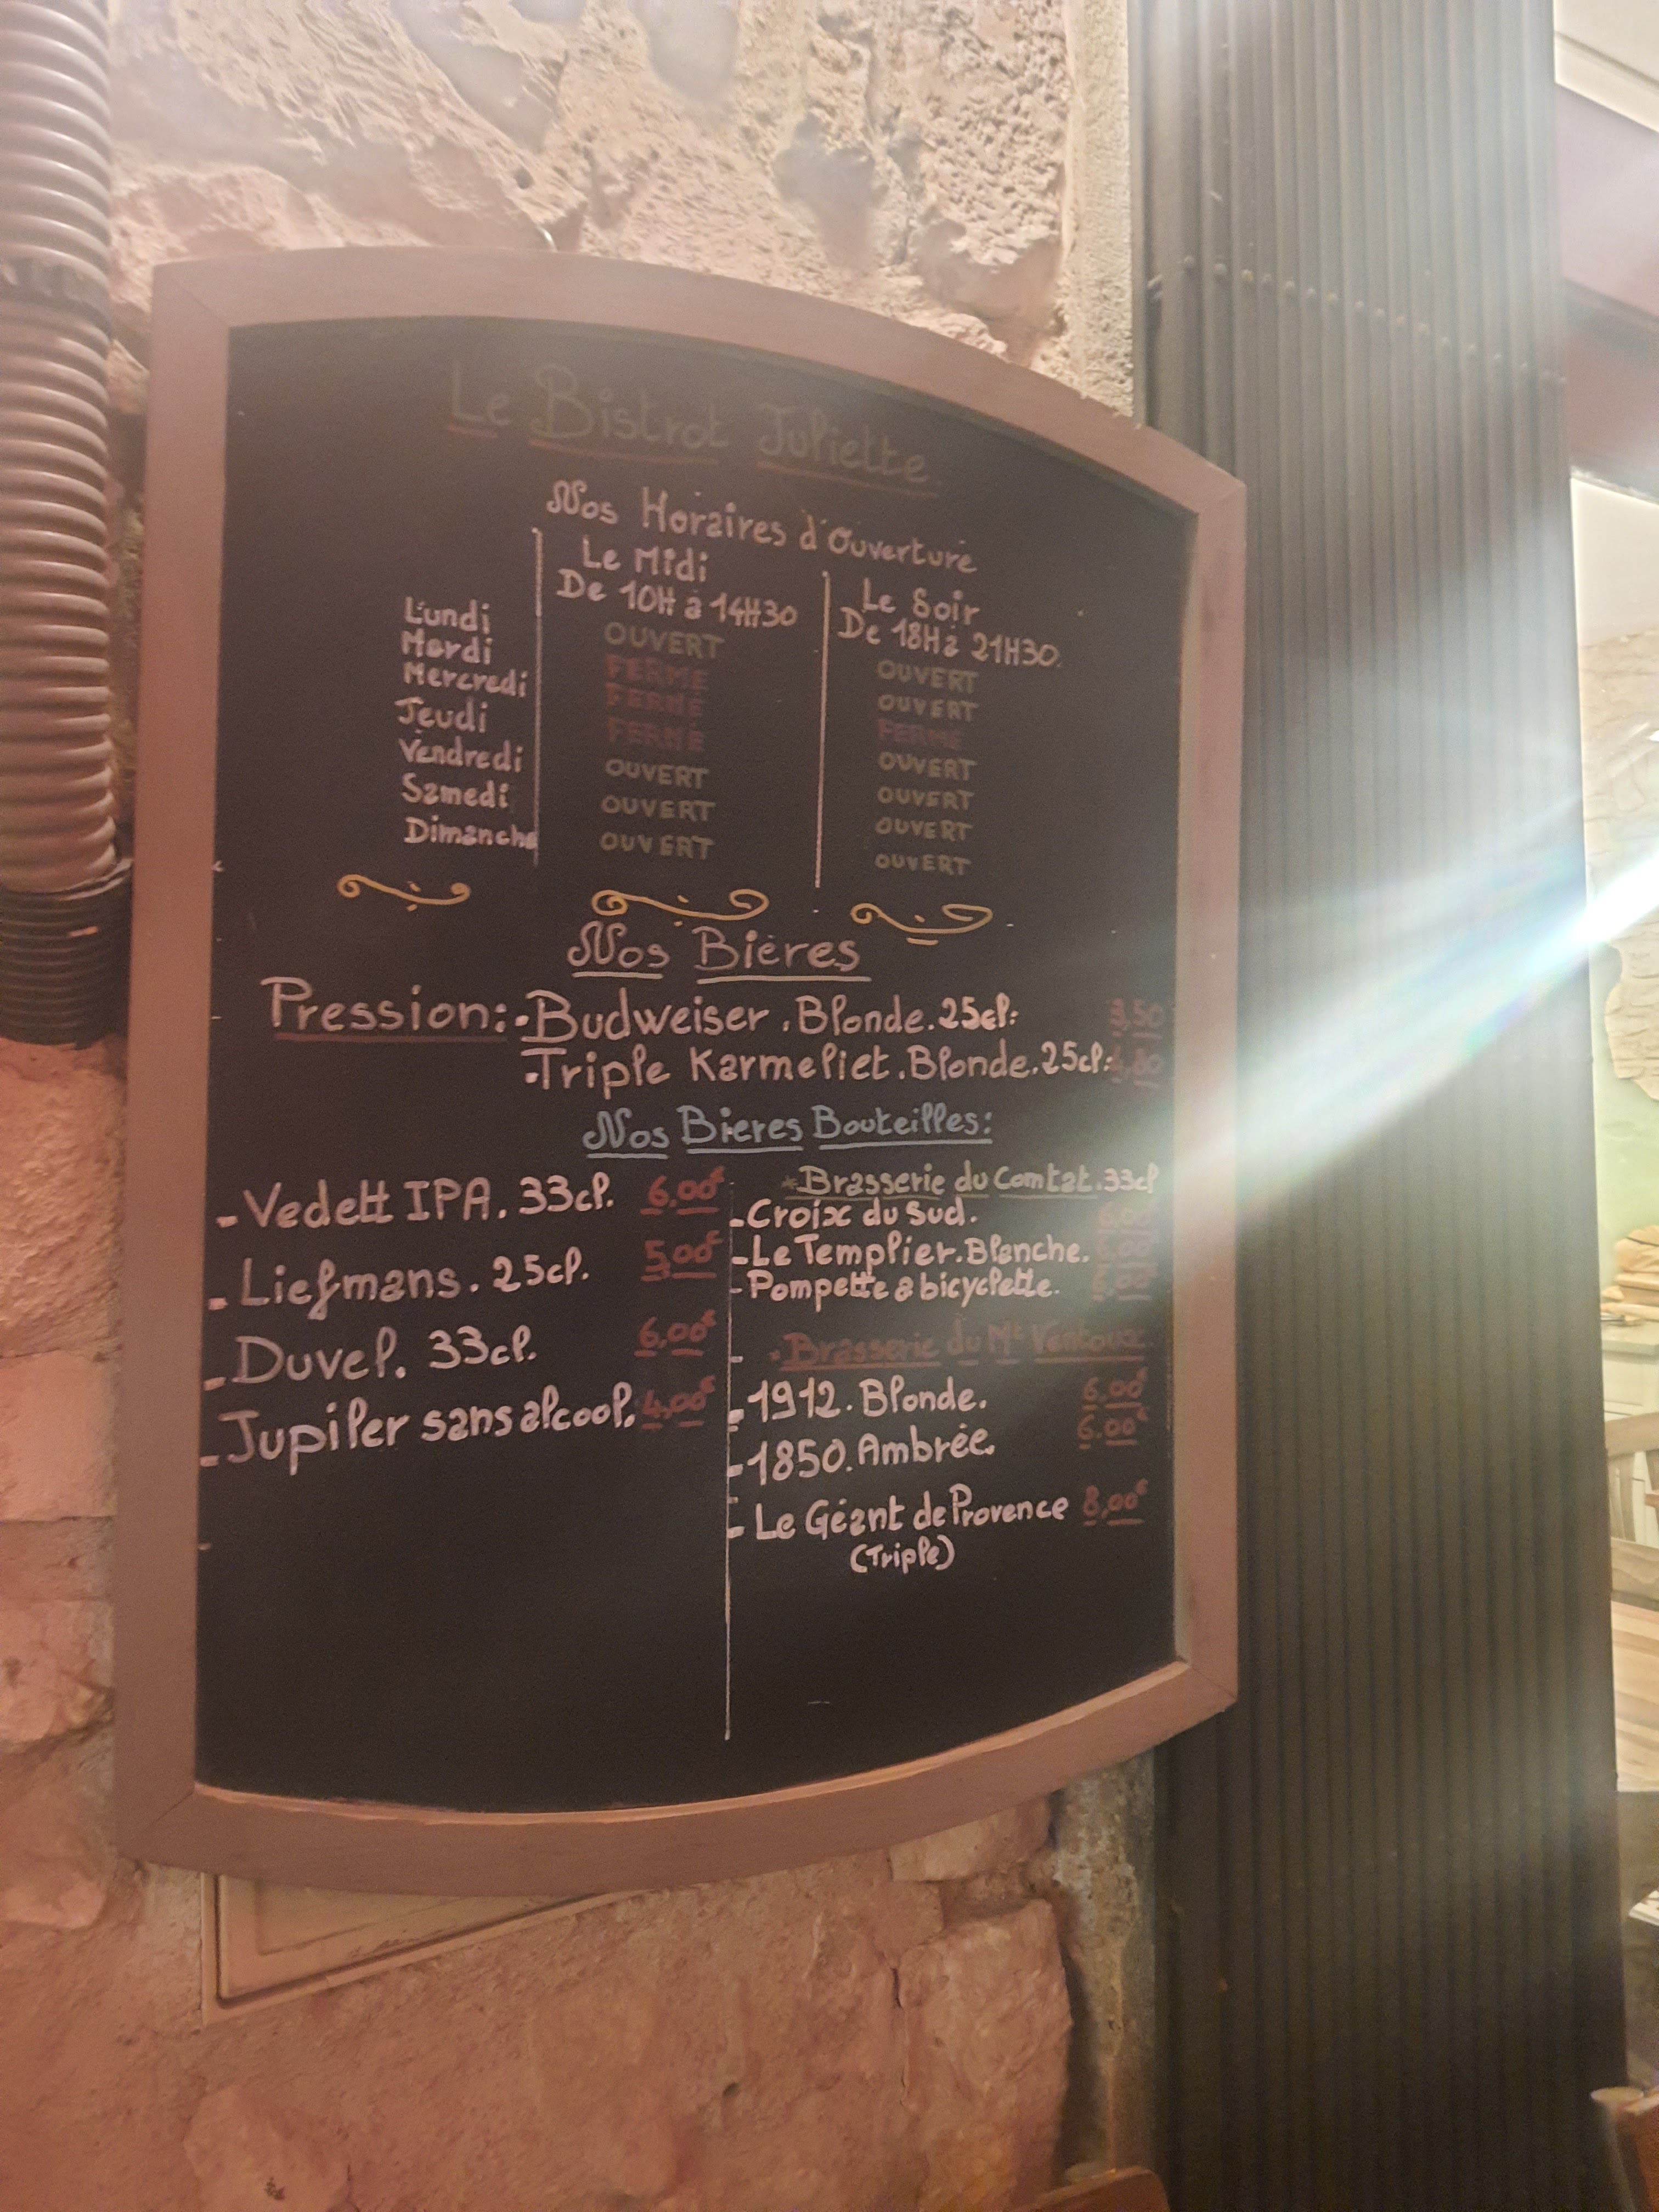 Le Bistrot Juliette
Nos Horaires d'Ouverture
Le Midi Le Soir
De 10H à 14H30 De 18H à 21H30.
Lundi OUVERT OUVERT
Mardi FERME OUVERT
Mercredi FERME FERME
Jeudi FERME OUVERT
Vendredi OUVERT OUVERT
Samedi OUVERT OUVERT
Dimanche OUVERT OUVERT
Nos Bières
Pression: • Budweiser. Blonde. 25cl: 3,50
• Triple Karmeliet. Blonde. 25cl: 4,80
Nos Bieres Bouteilles:
- Vedett IPA. 33cl. 6,00€
- Liefmans. 25cl. 5,00€
- Duvel. 33cl. 6,00€
- Jupiler sans alcool. 4,00€
* Brasserie du Comtat. 33cl
- Croix du Sud. 6,00
- Le Templier. Blanche.
- Pompette a bicyclette.
* Brasserie du Mt Ventoux
- 1912. Blonde. 6.00€
- 1850. Ambrée. 6.00€
- Le Géant de Provence 8,00€
(Triple)